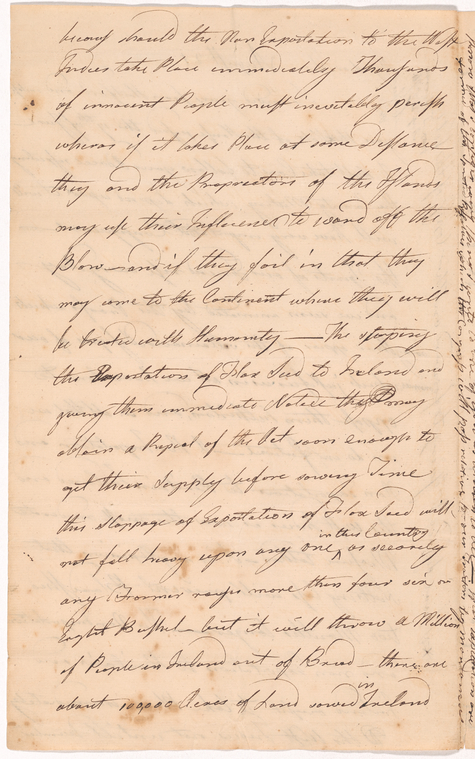 should the Non Exportation to the West
Indies take Place immediately Thousands
of innocent People must inevitably perish
wheras if it takes Place at some Distance
they and the Proprietors of the Islands
may use their Influence to ward off the
Blow—and if they fail in that they
may come to the Continent where they will
be treated with Humanity — The stoping
the Exportation of Flax Seed to Ireland and
giving them immediate Notice they may
obtain a Repeal of the Act soon enough to
get their Supply before sowing Time
this Stoppage of Exportation of Flax Seed will
in this Country
not fall heavy upon any one ^ as scarcely
any Farmer raises more than four six or
Eight Bushel — but it will throw a Million
of People in Ireland out of Bread — there are
in
about 100,000 Acres of Land sowed Ireland